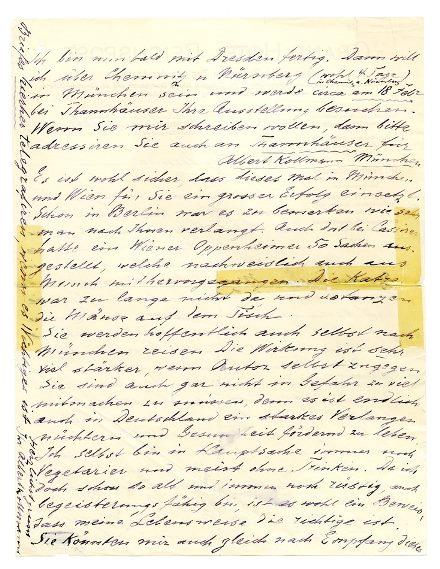 Ich bin nun bald mit Dresden fertig. Dann will
ich über Chemnitz u Nürnberg (wohl 4 Tage
in Chemnitz u. Nürnberg)
in München sein und werde circa am 18 Febr
bei Thannhäuser Ihre Ausstellung besuchen.
Wenn Sie mir schreiben wollen, dann bitte
adressieren Sie auch an Thannhäuser für
Albert Kollmann München
Es ist wohl sicher, dass dieses Mal in München
und Wien für Sie ein grosser Erfolg einsetzt.
Schon in Berlin war es zu bemerken wie sehr
man nach Ihnen verlangt. Auch dort bei Cassirer
hatte ein Wiener Oppenheimer So Sachen aus
gestellt, welche nachweislich auch aus
Munch mit hervorgegangen. Die Katze
war zu lange nicht da und so tanzen
die Mäuse auf dem Tisch.
Sie werden hoffentlich auch selbst nach
München reisen Die Wirkung ist sehr
viel stärker, wenn Autor selbst zugegen
Sie sind auch gar nicht in Gefahr zu viel
mitmachen zu müssen, denn es ist endlich
auch in Deutschland ein starkes Verlangen
nüchtern und Gesundheit fördernd zu leben.
Ich selbst bin in Hauptsache immer noch
Vegetarier und meist ohne Trinken. Da ich
doch schon so alt und immer noch rüstig und
begeisterungsfähig bin, ist es wohl ein Beweis,
dass meine Lebensweise die richtige ist.
Sie könnten mir auch gleich nach Empfang dieses
Briefes hierher telegrafieren, wenn es
Herzlichst Ihr
Albert Kollmann